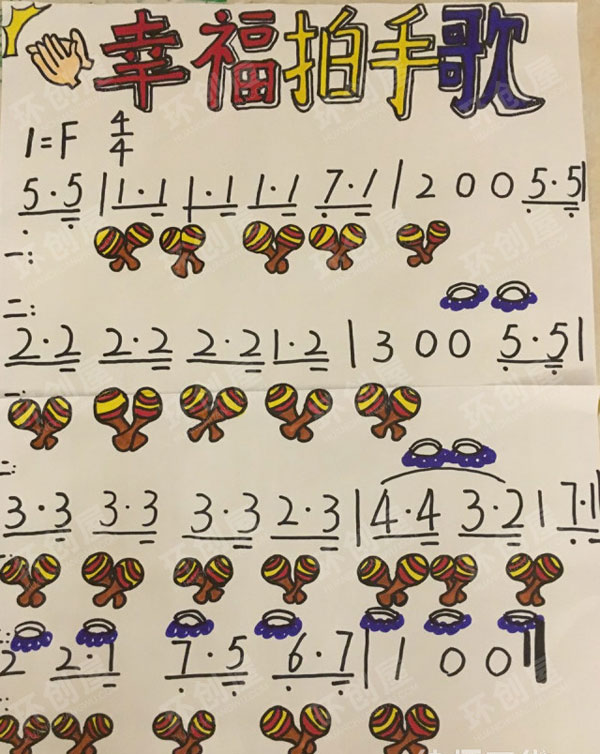 幸福拍手歌
1=F 4/4
5·5|1·1 1·1 1·1 7·1|2 0 0 5·5|
一:
二:
2·2 2·2 2·2 1·2|3 0 0 5·5|
3·3 3·3 3·3 2·3|4·4 3·2|7·1
2 2·1 7·5 6·7|1 0 0‖